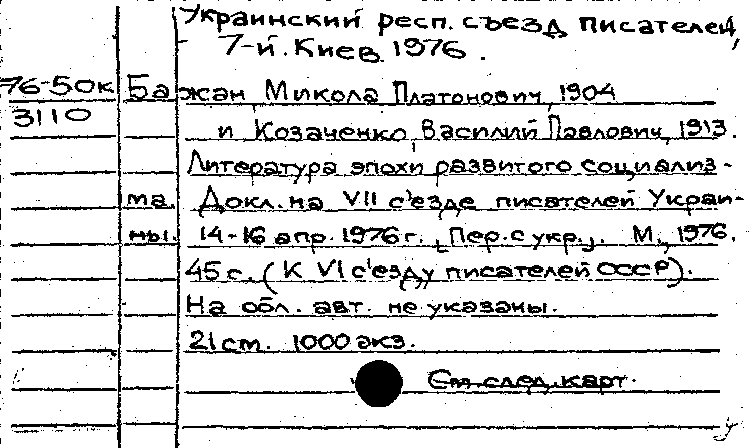 Украинский респ. съезд писателей,
7-й. Киев. 1976.
76-50к Бажан, Микола Платонович, 1904
3110 и Козаченко, Василий Павлович, 1913.
Литература эпохи развитого социализ-
ма. Докл. на VII с'езде писателей Украи-
ны. 14-16 апр. 1976 г. [Пер. с укр.]. М., 1976.
45 с. (К VI с'езду писателей СССР).
На обл. авт. не указаны.
21 см. 1000 экз.
См. след. карт.